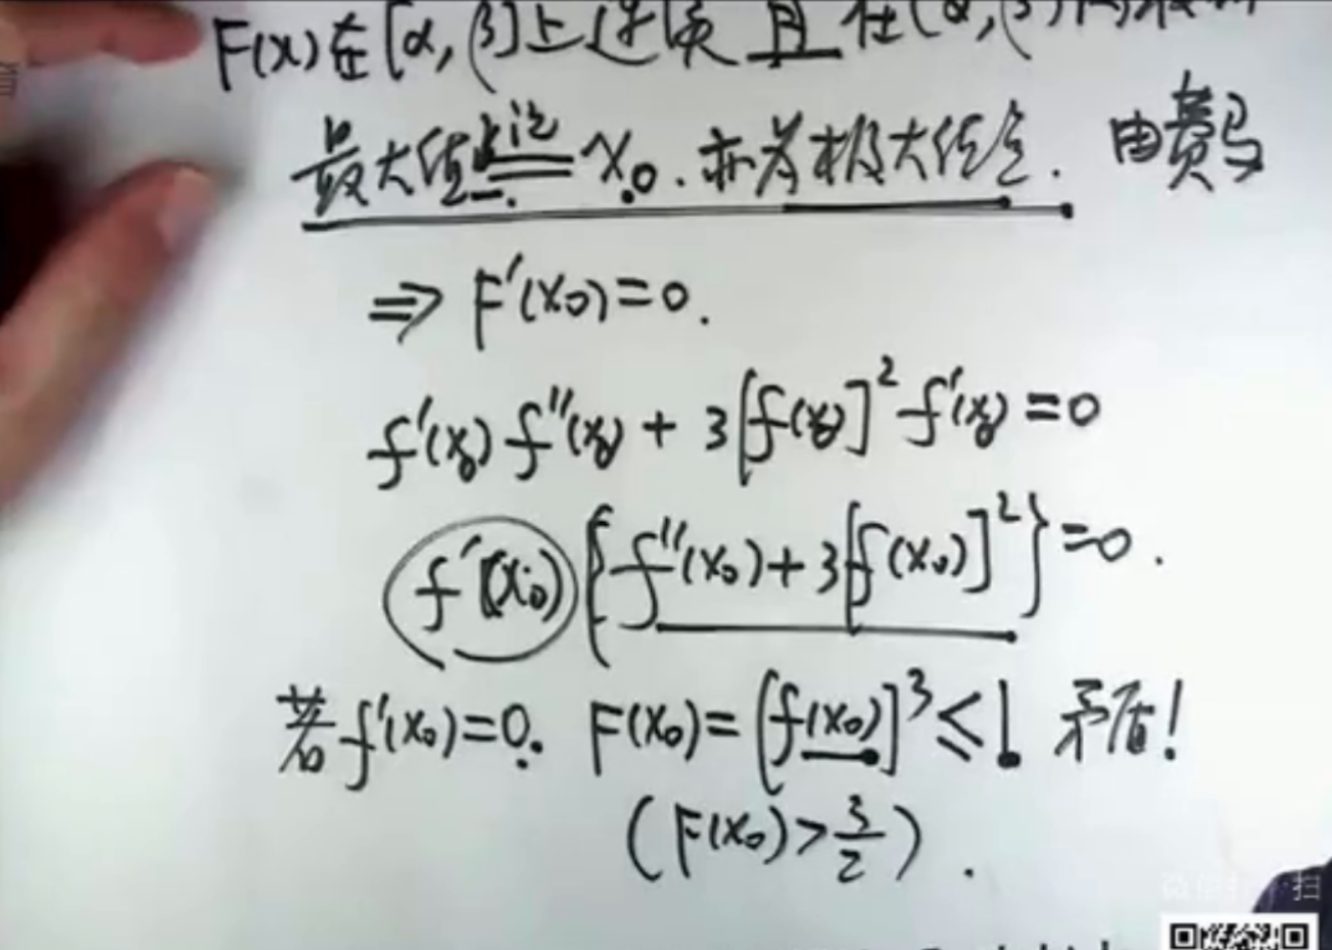 F(x)在[α,β]上连续且在(α,β)内取到
最大值记=x₀.亦为极大值点. 由费马
⇒ F'(x₀)=0.
f'(x₀)f''(x₀)+3[f(x₀)]²f'(x₀)=0
f'(x₀){f''(x₀)+3[f(x₀)]²}=0.
若f'(x₀)=0. F(x₀)=[f(x₀)]³≤1 矛盾!
(F(x₀)>3/2).
扫